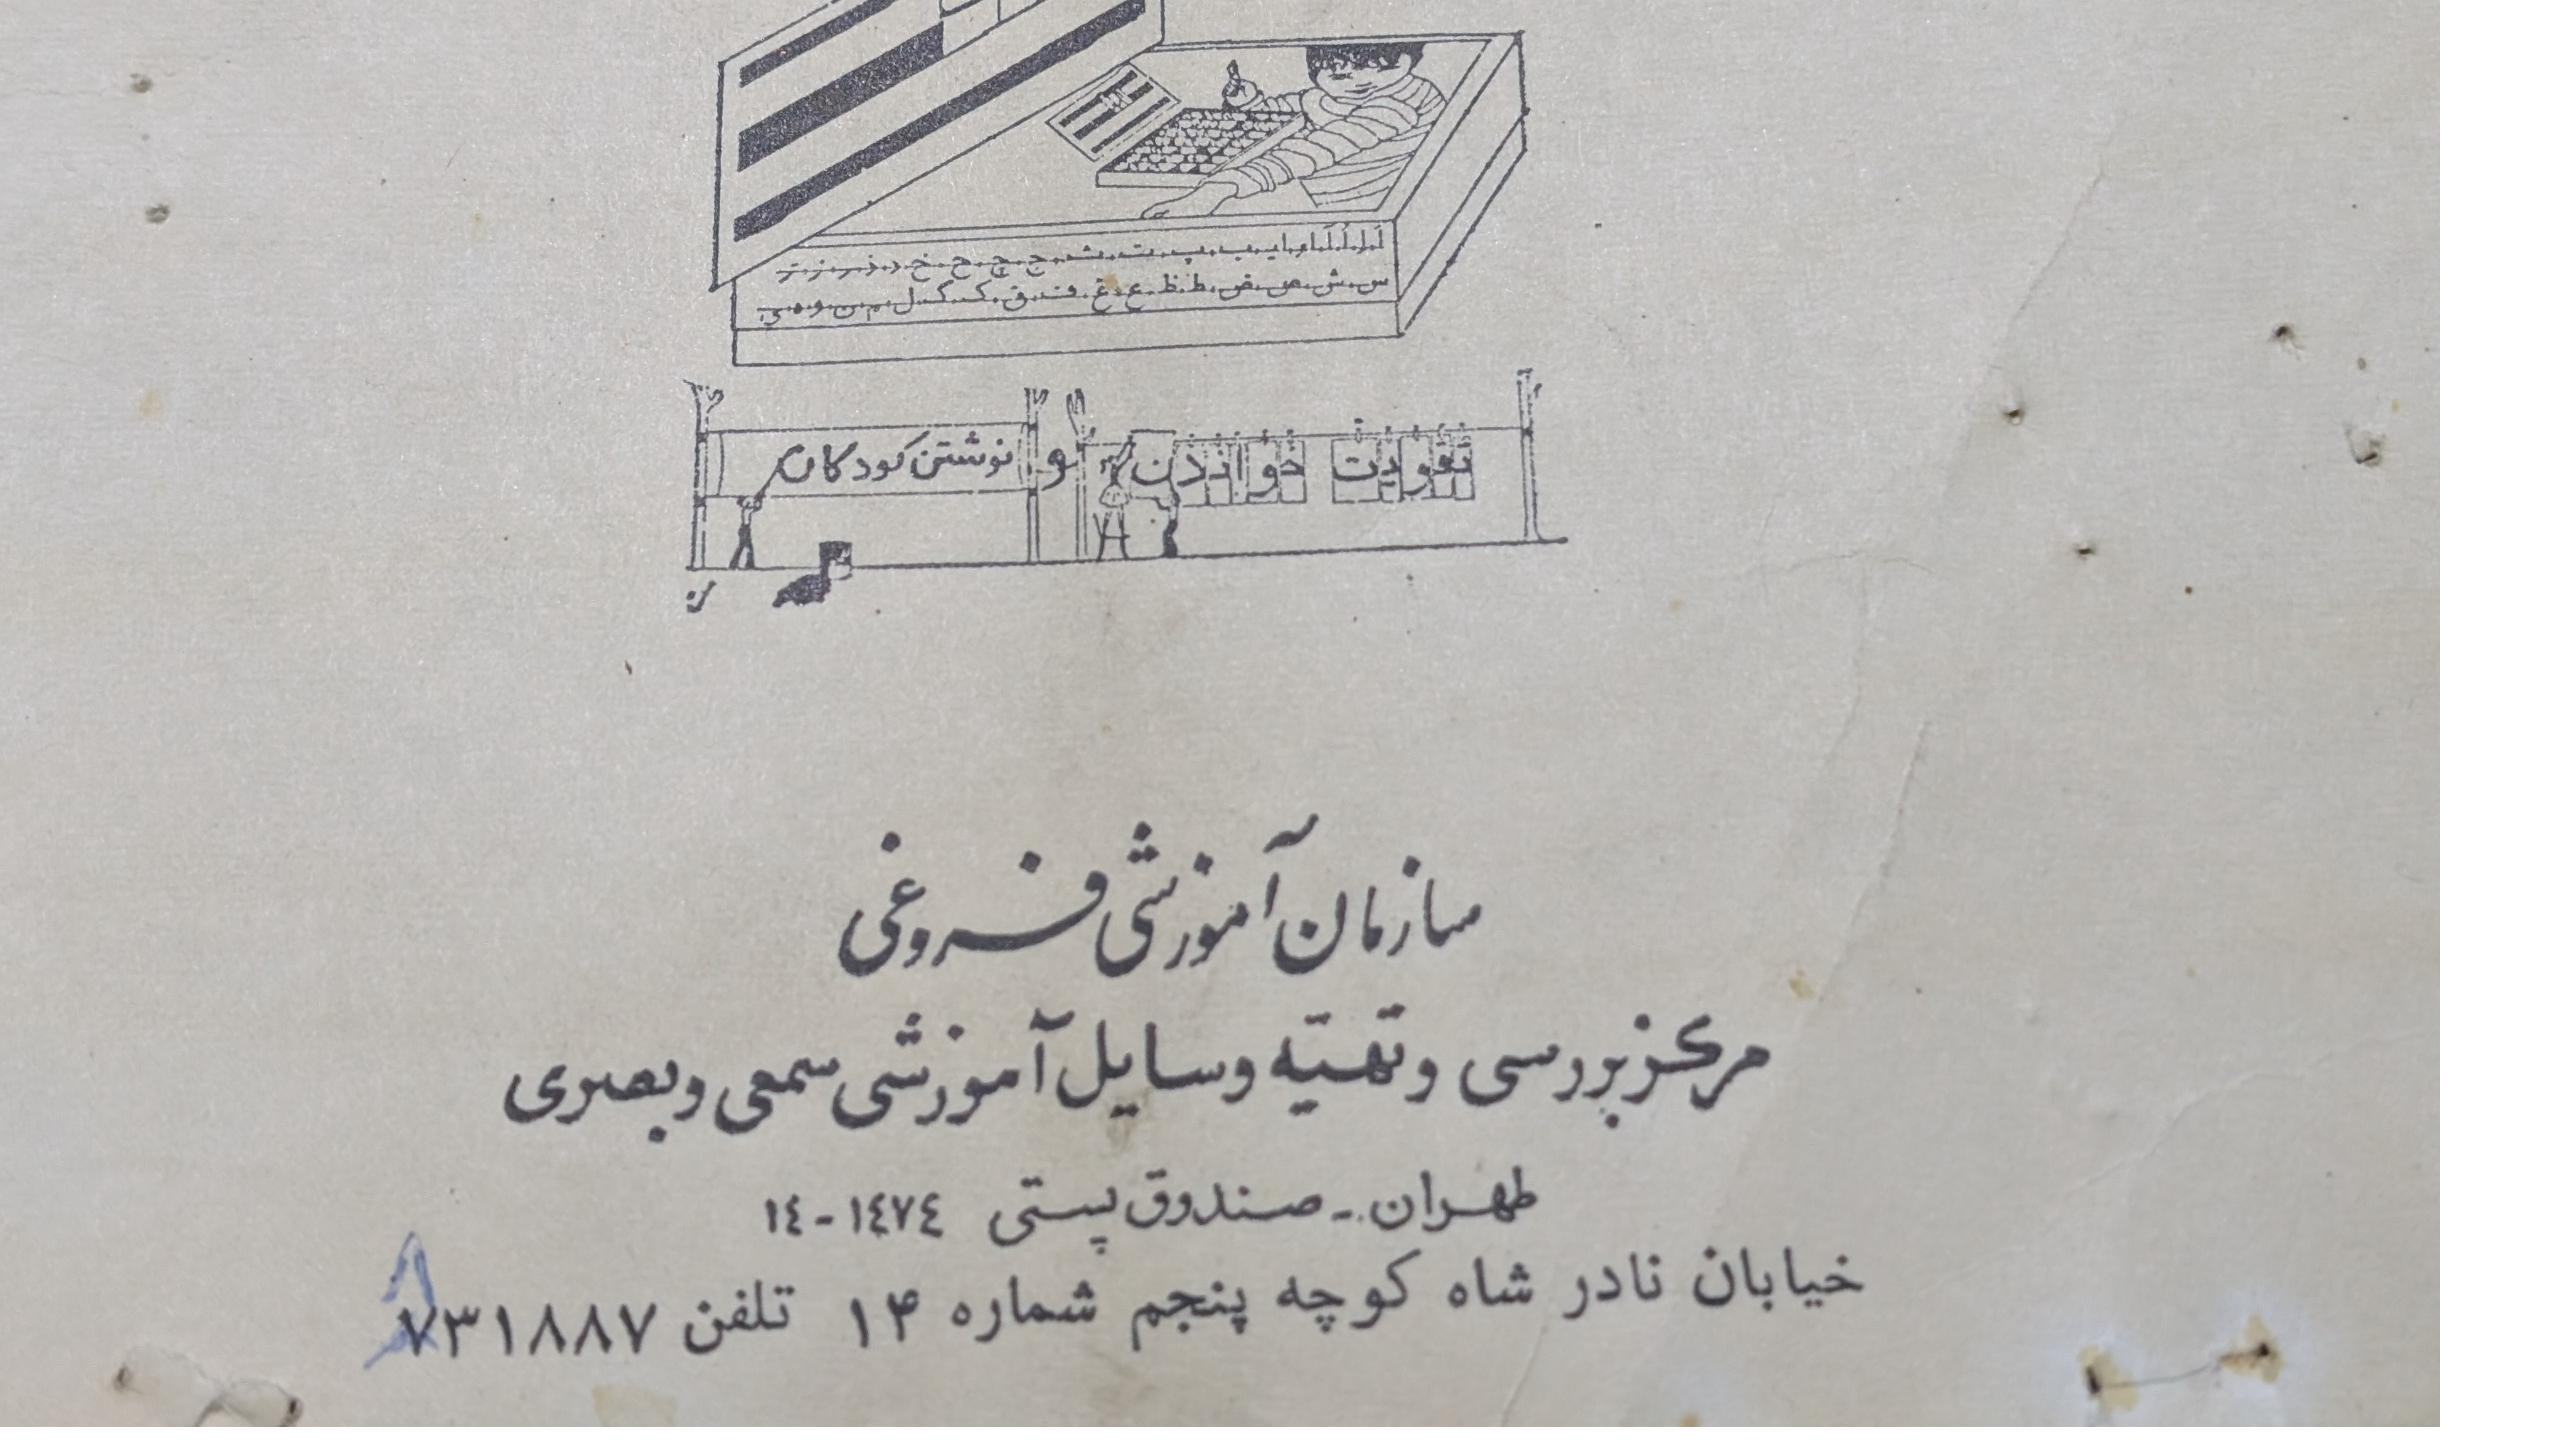 آ.ا.اَ.اِ.اُ.او.ایـ.بـ.پـ.تـ.ثـ.جـ.چـ.حـ.خـ.د.ذ.ر.ز.ژ
سـ.شـ.صـ.ضـ.ط.ظ.ع.غ.فـ.قـ.کـ.گـ.ل.م.ن.و.ه.ی
تقویت خواندن و نوشتن کودکان
سازمان آموزشی فروغی
مرکز بررسی و تهیّه وسایل آموزشی سمعی و بصری
طهران - صندوق پستی ١٤٧٤-١٤
خیابان نادر شاه کوچه پنجم شماره ۱۴ تلفن ۷۳۱۸۸۷